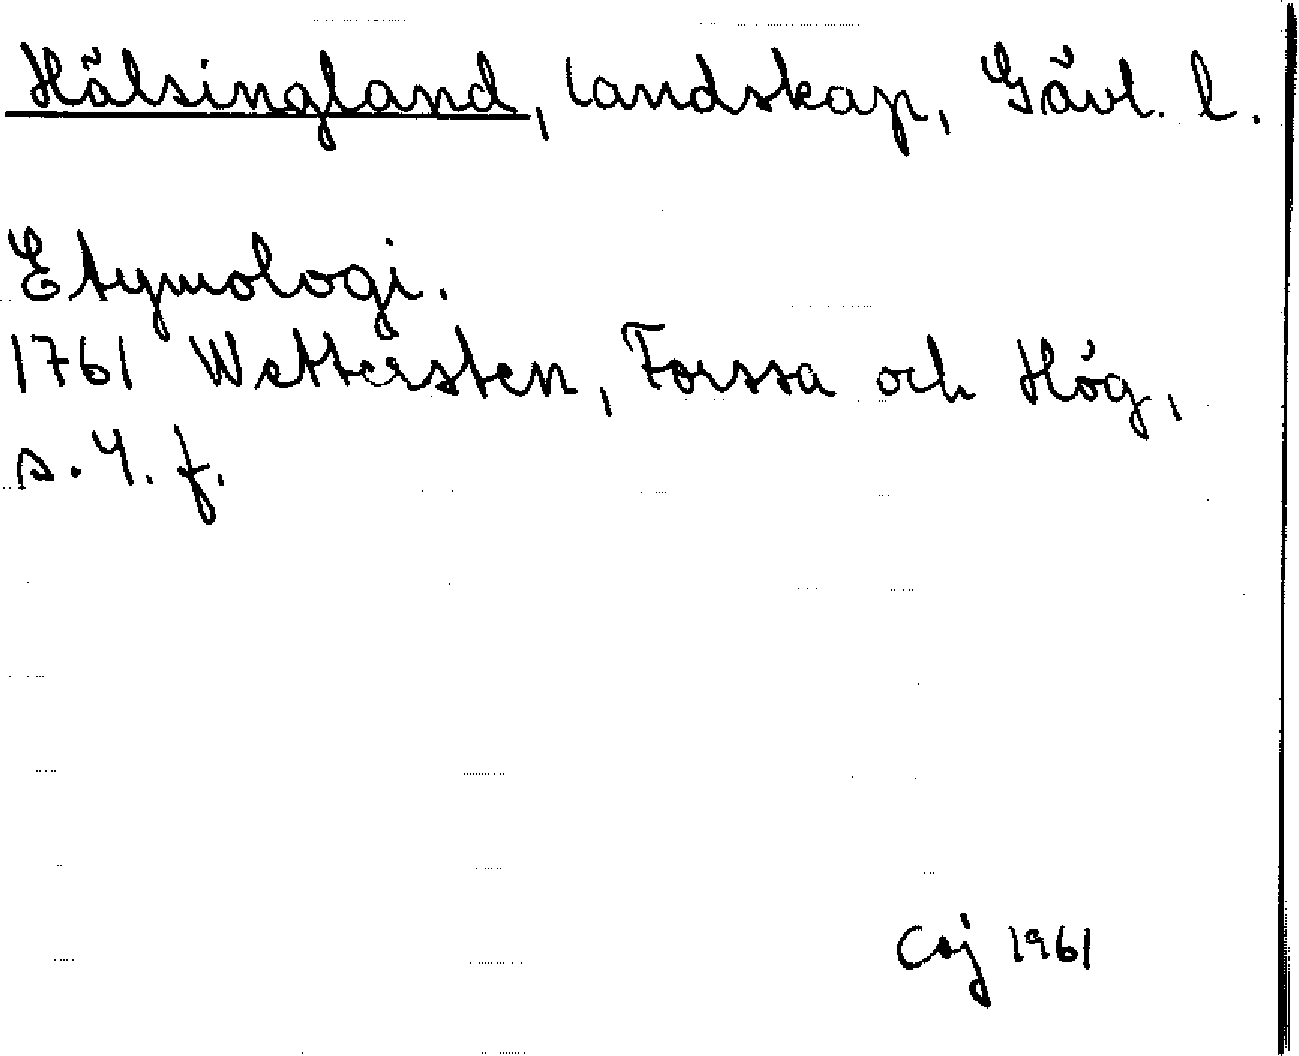 Hälsingland, landskap, Gävl. l.
Etymologi.
1761 Wettersten, Forssa och Hög,
s. 4. f.
Caj 1961